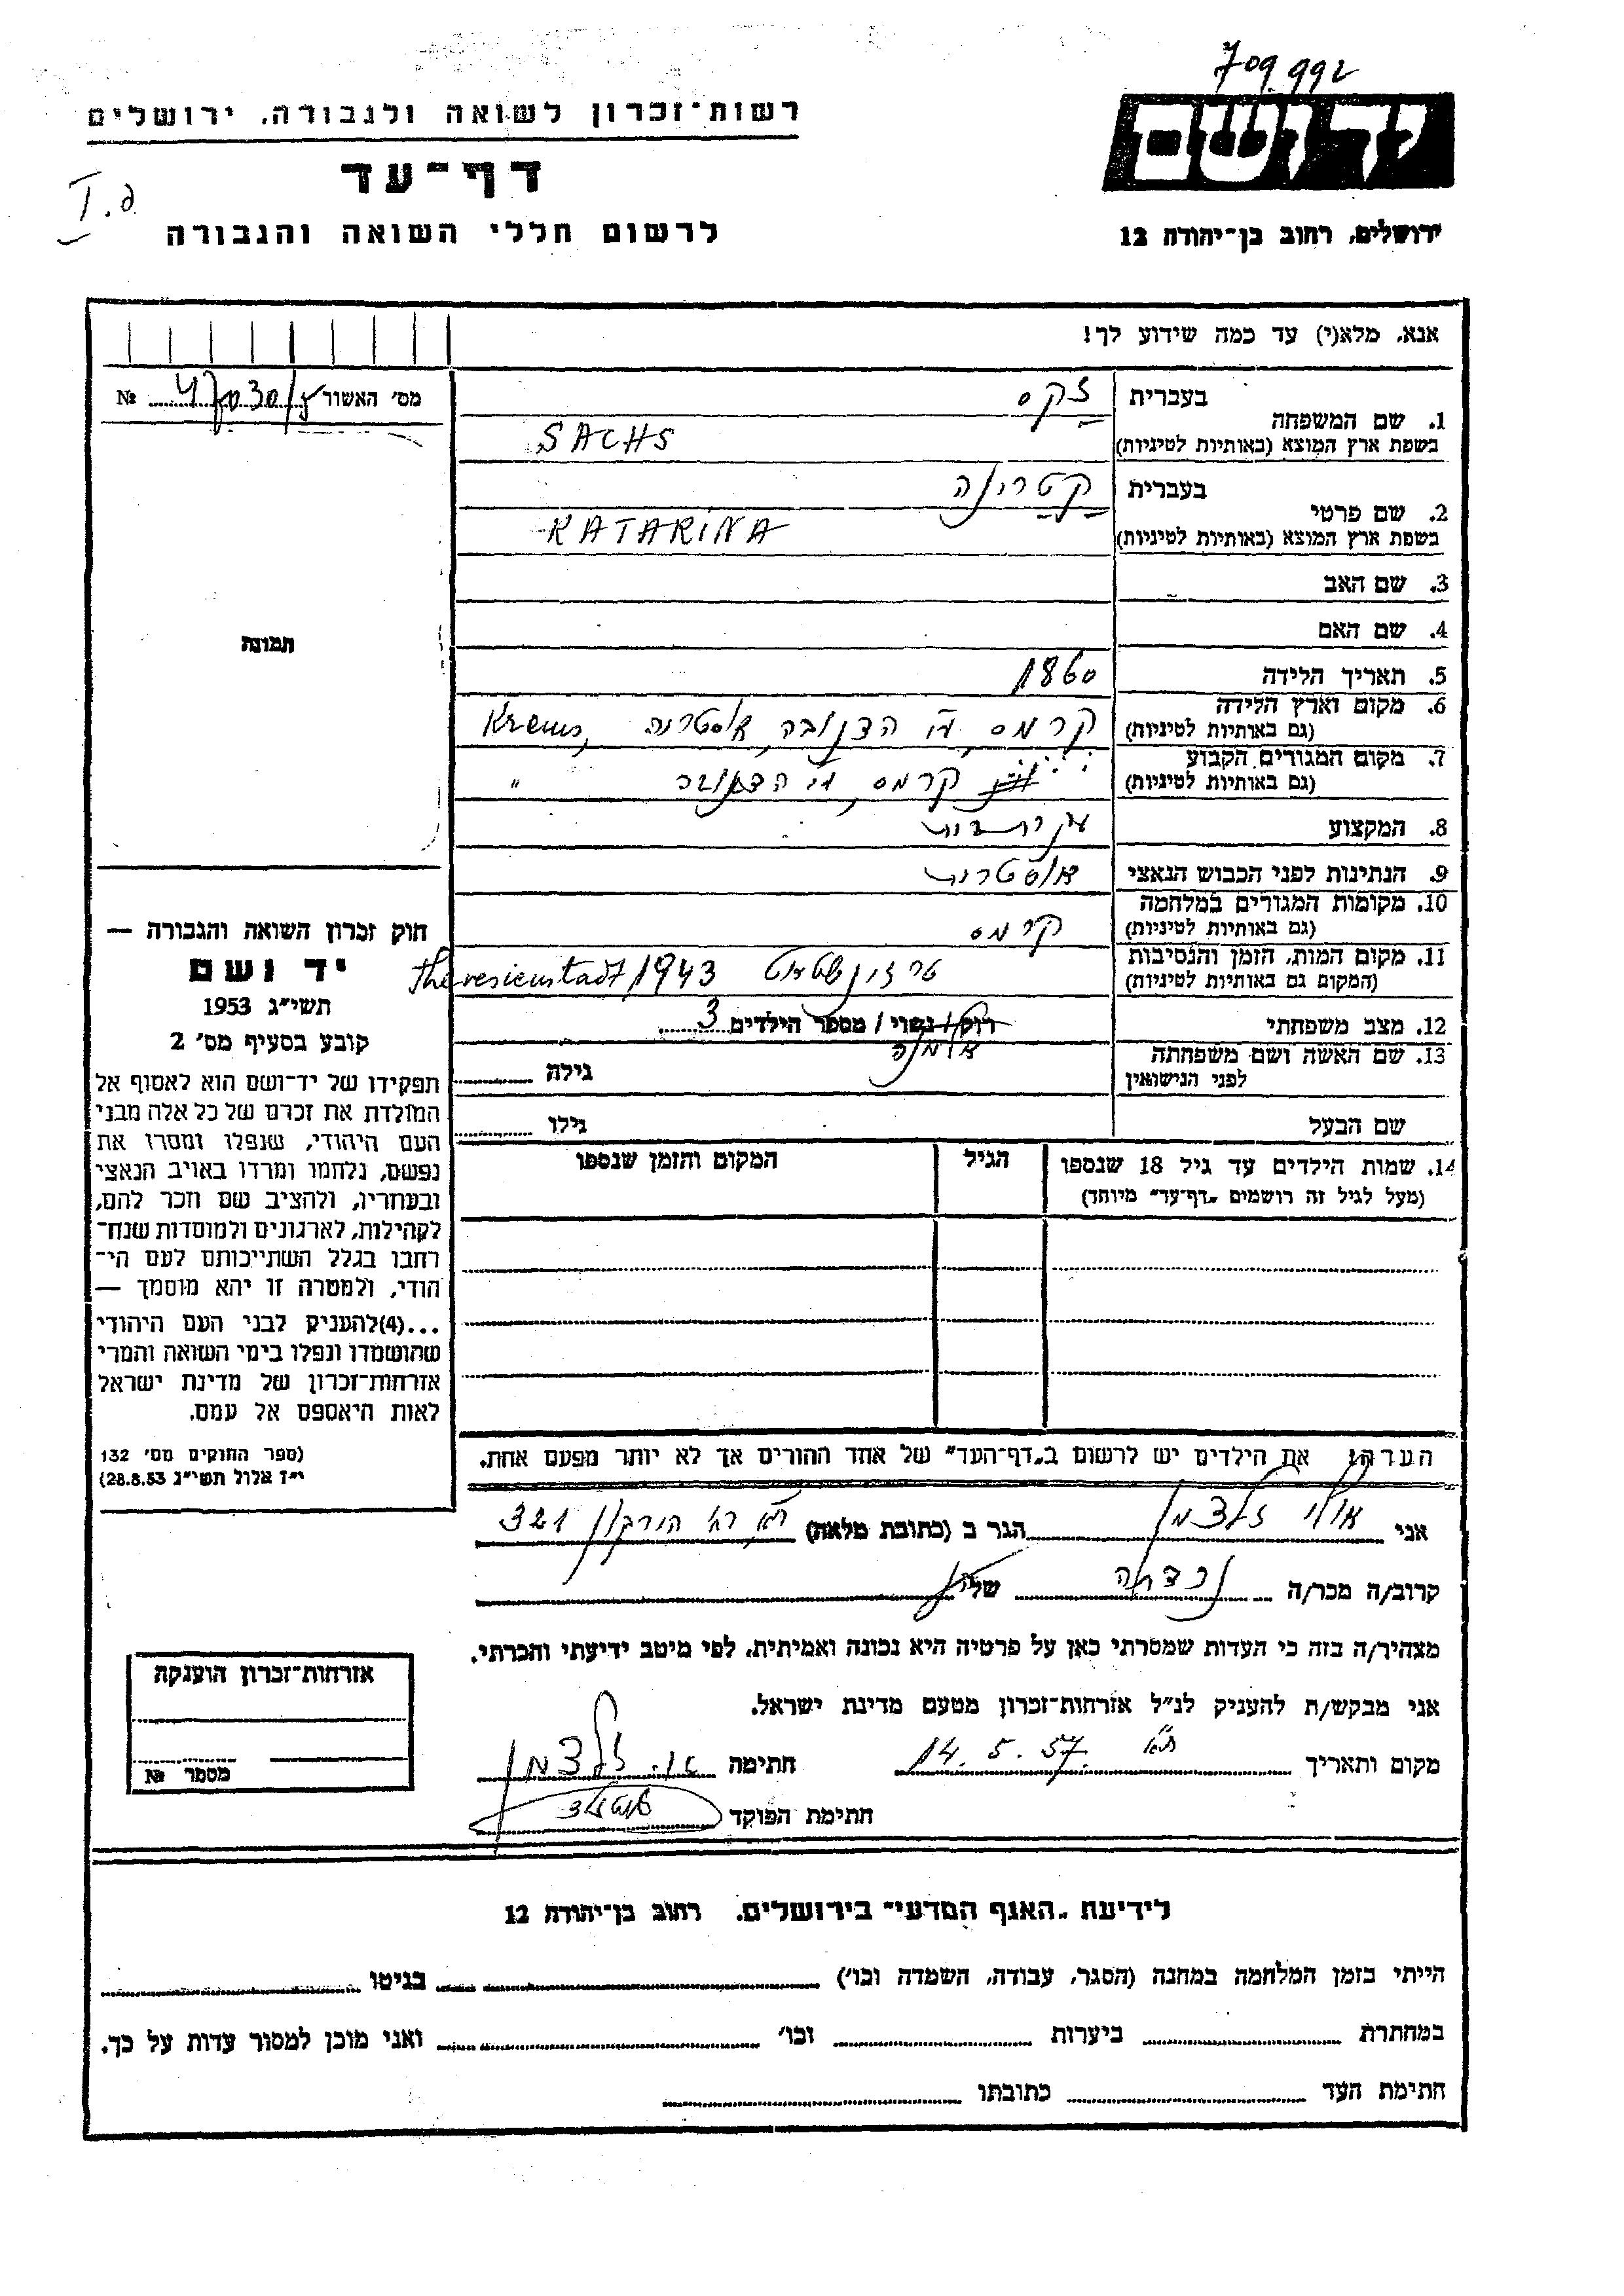 709992
ידושם
ירושלים, רחוב בן־יהודה 12
רשות־זכרון לשואה ולגבורה, ירושלים
דף־עד
לרשום חללי השואה והגבורה
אנא, מלא(י) עד כמה שידוע לך!
מס׳ האשור №
1. שם המשפחה בעברית זקס
בשפת ארץ המוצא (באותיות לטיניות) SACHS
2. שם פרטי בעברית קטרינה
בשפת ארץ המוצא (באותיות לטיניות) KATARINA
3. שם האב
4. שם האם
5. תאריך הלידה 1860
6. מקום וארץ הלידה (גם באותיות לטיניות) קרמס, הדנובה, אוסטריה Krems,
7. מקום המגורים הקבוע (גם באותיות לטיניות) קרמס "
8. המקצוע עקרת בית
9. הנתינות לפני הכבוש הנאצי אוסטרית
10. מקומות המגורים במלחמה (גם באותיות לטיניות) קרמס
11. מקום המות, הזמן והנסיבות (המקום גם באותיות לטיניות) טרזינשטאט 1943 Theresienstadt
12. מצב משפחתי רווק / נשוי / מספר הילדים 3
אלמנה
13. שם האשה ושם משפחתה לפני הנישואין גילה
שם הבעל גילו
14. שמות הילדים עד גיל 18 שנספו הגיל המקום והזמן שנספו
(מעל לגיל זה רושמים „דף־עד" מיוחד)
הערה: את הילדים יש לרשום ב„דף־העד" של אחד ההורים אך לא יותר מפעם אחת.
תמונה
חוק זכרון השואה והגבורה —
יד ושם
תשי״ג 1953
קובע בסעיף מס׳ 2
תפקידו של יד־ושם הוא לאסוף אל
המולדת את זכרם של כל אלה מבני
העם היהודי, שנפלו ומסרו את
נפשם, נלחמו ומרדו באויב הנאצי
ובעוזריו, ולהציב שם וזכר להם,
לקהילות, לארגונים ולמוסדות שנח־
רבו בגלל השתייכותם לעם הי־
הודי, ולמטרה זו יהא מוסמך —
...(4)להעניק לבני העם היהודי
שהושמדו ונפלו בימי השואה והמרי
אזרחות־זכרון של מדינת ישראל
לאות היאספם אל עמם.
(ספר החוקים מס׳ 132
י״ז אלול תשי״ג 28.8.53)
אני זלצמן הגר ב (כתובת מלאה) הירקון 321
קרוב/ה מכר/ה נכדתה של
מצהיר/ה בזה כי העדות שמסרתי כאן על פרטיה היא נכונה ואמיתית, לפי מיטב ידיעתי והכרתי.
אני מבקש/ת להעניק לנ״ל אזרחות־זכרון מטעם מדינת ישראל.
מקום ותאריך ת״א 14.5.57 חתימה א. זלצמן
חתימת הפוקד
אזרחות־זכרון הוענקה
מספר №
לידיעת „האגף המדעי" בירושלים, רחוב בן־יהודה 12
הייתי בזמן המלחמה במחנה (הסגר, עבודה, השמדה וכו׳) בגיטו
במחתרת ביערות וכו׳ ואני מוכן למסור עדות על כך.
חתימת העד כתובתו